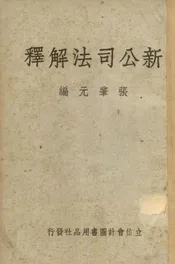 新公司法解釋
張肇元編
立信會計圖書用品社發行